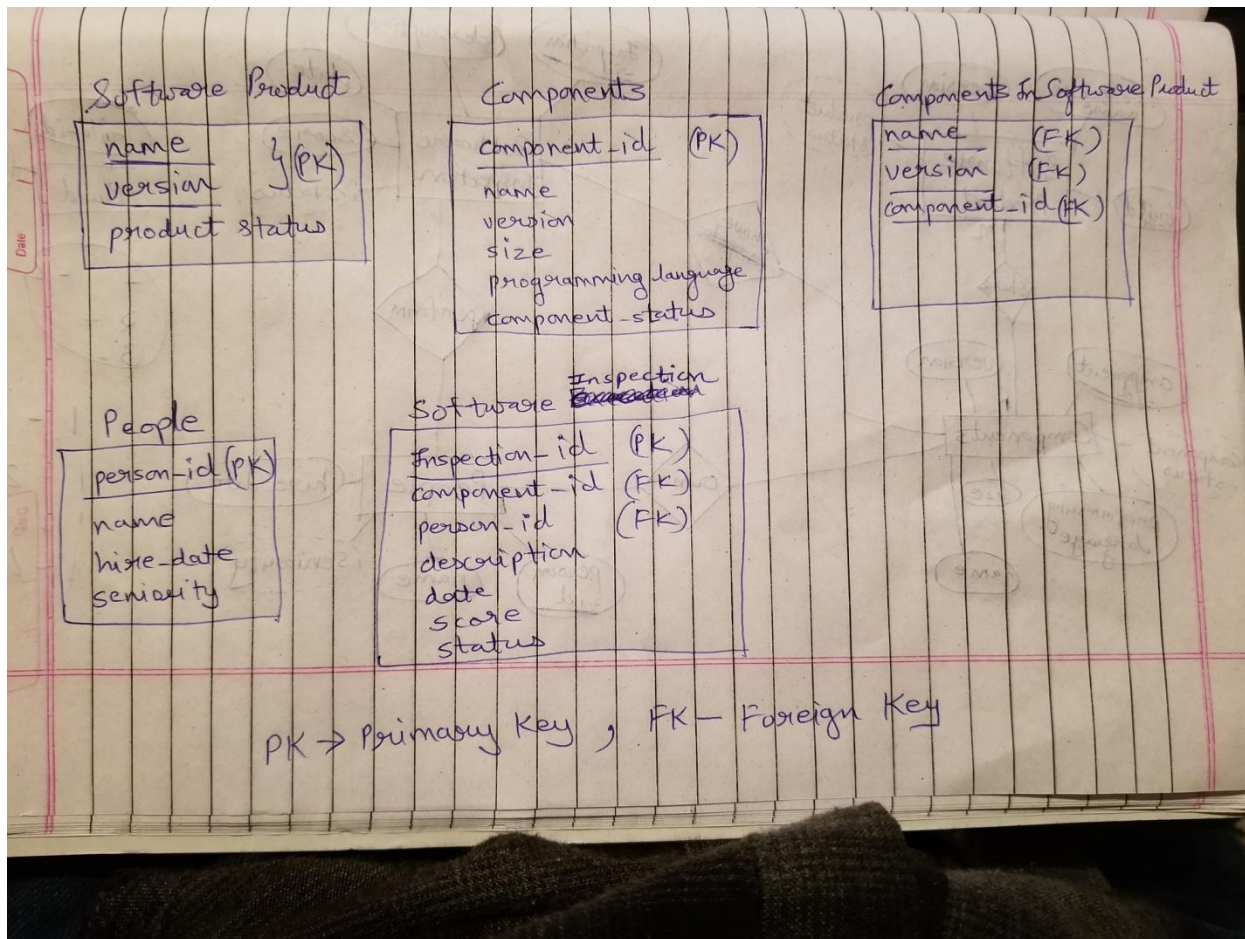 Software Product
name
version } (PK)
product status
Components
component_id (PK)
name
version
size
programming language
component_status
Components In Software Product
name (FK)
version (FK)
component_id (FK)
People
person_id (PK)
name
hire_date
seniority
Software Inspection
Inspection_id (PK)
component_id (FK)
person_id (FK)
description
date
score
status
PK → Primary Key, FK — Foreign Key
Date